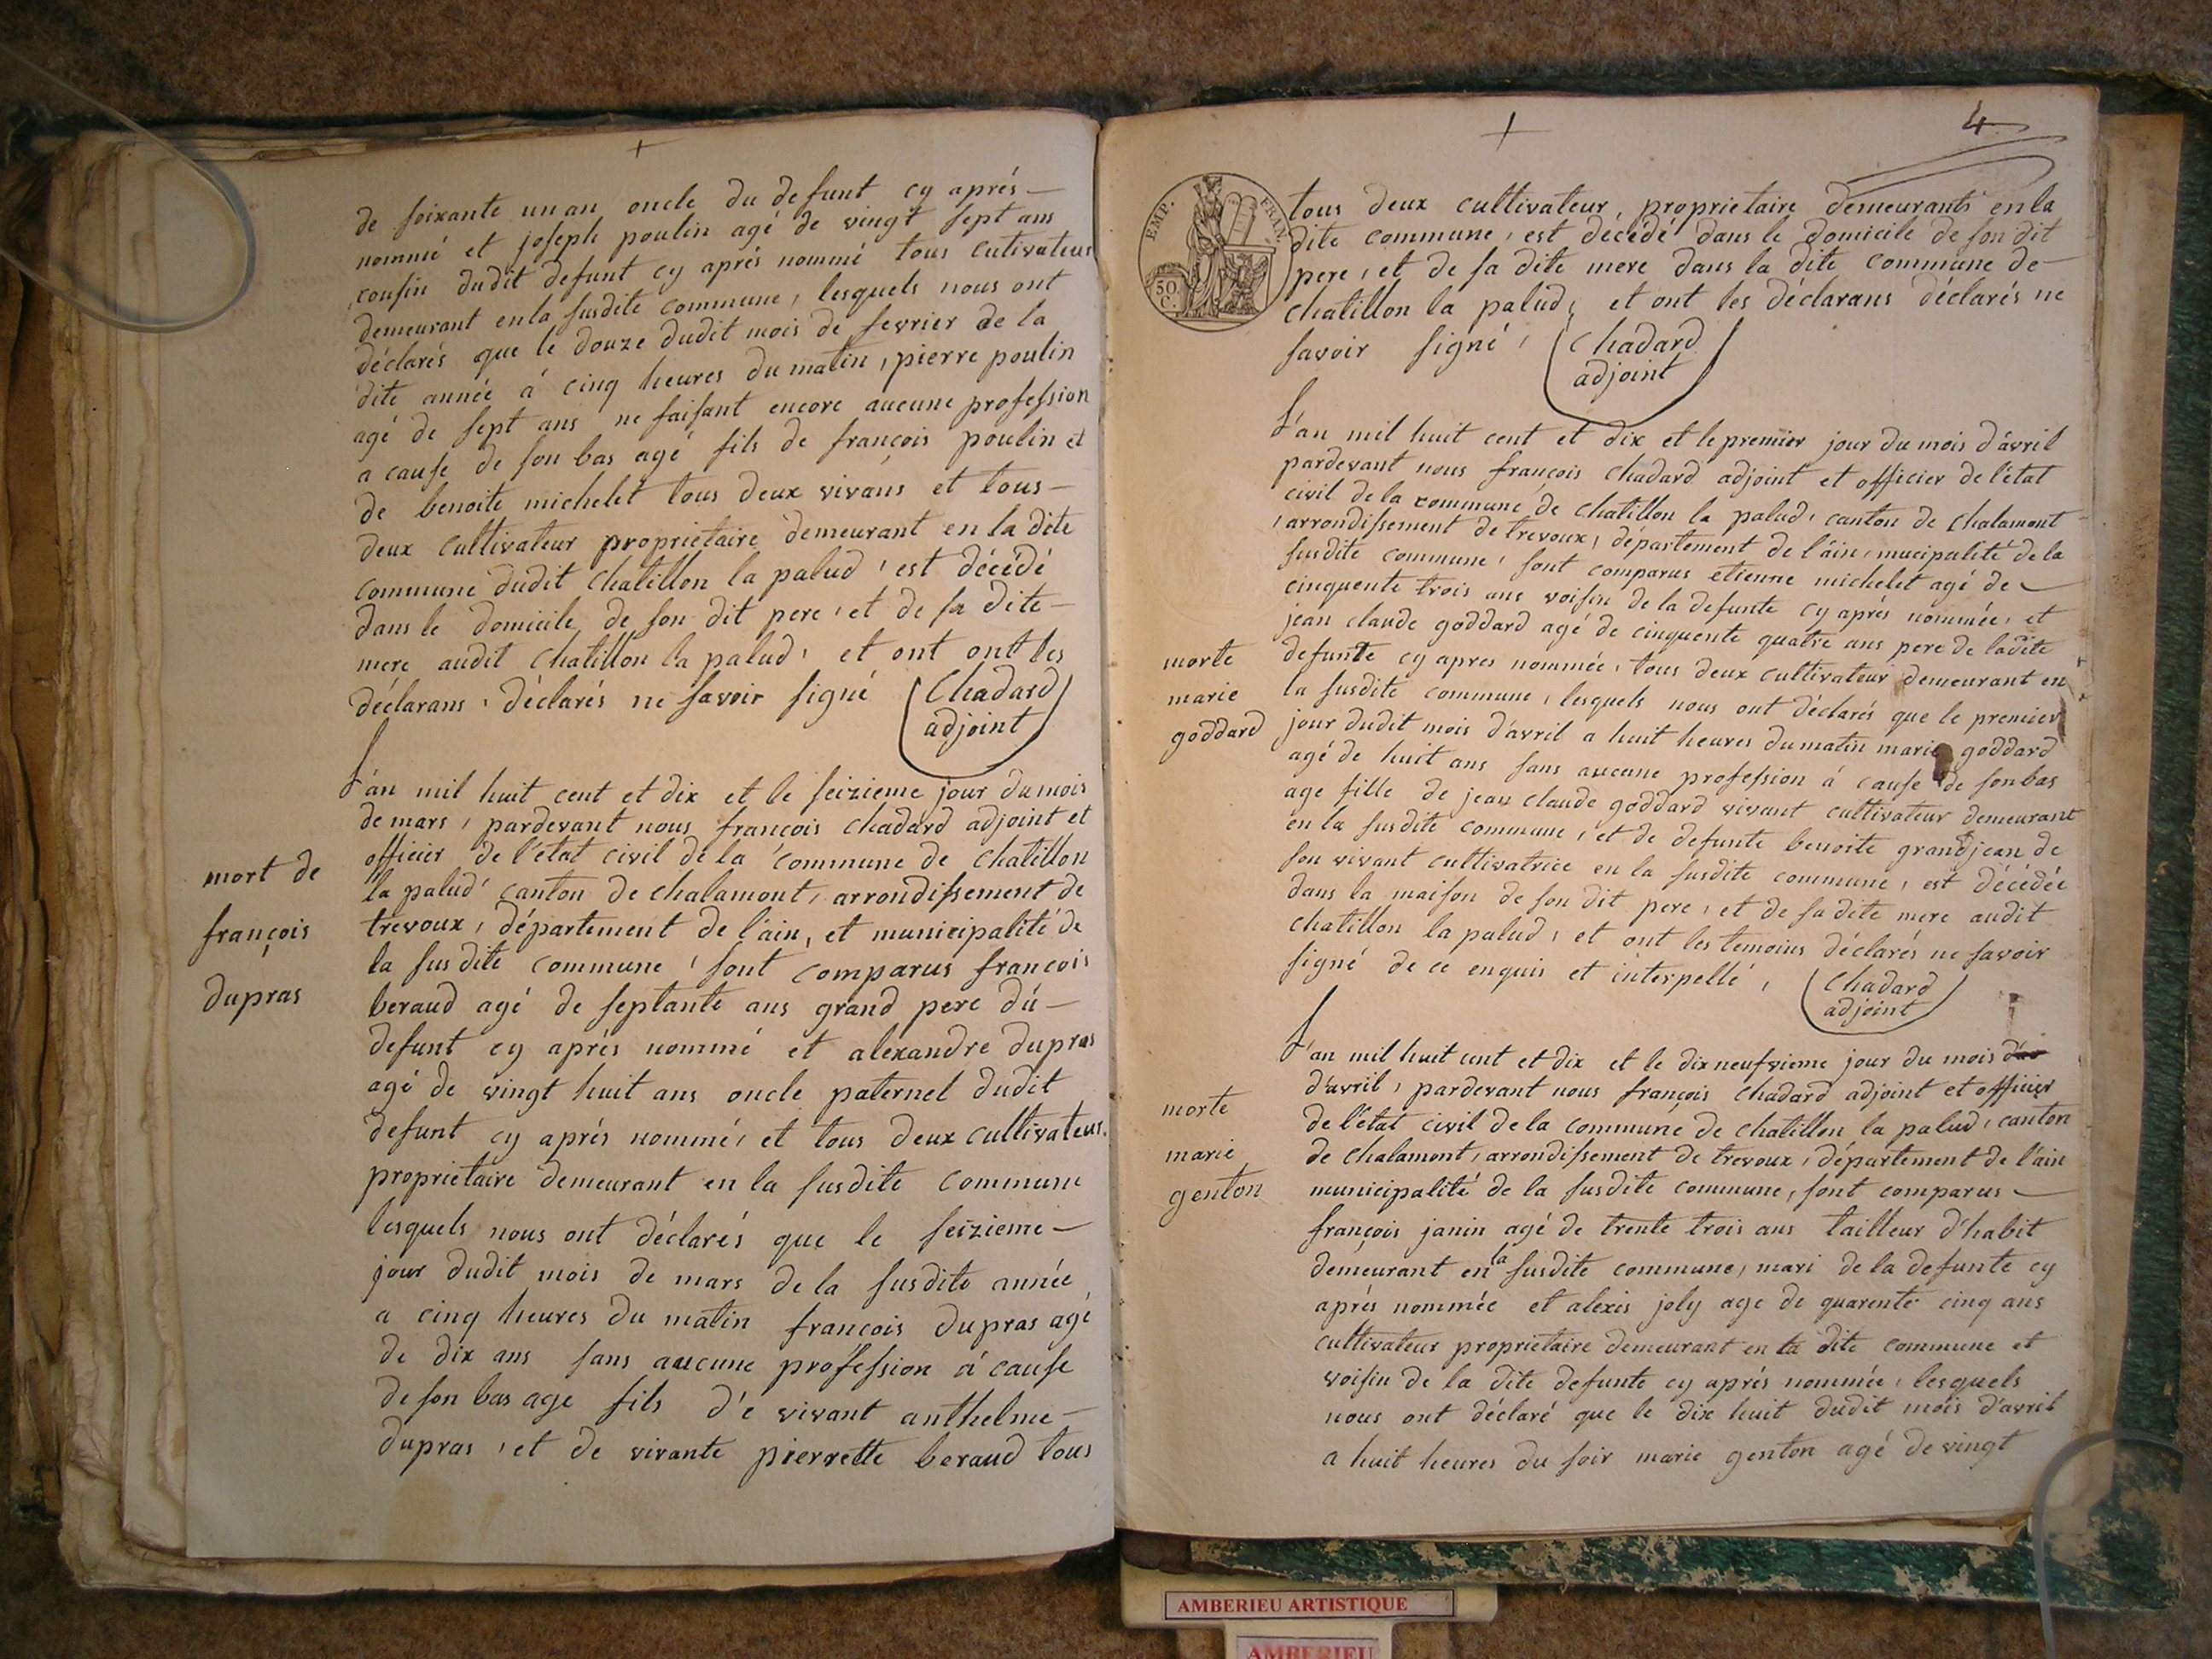 de soixante un an oncle du defunt cy aprés —
nommé et joseph poulin agé de vingt sept ans
cousin dudit defunt cy aprés nommé tous cutivateur
demeurant en la susdite commune, lesquels nous ont
déclarés que le douze dudit mois de fevrier de la
dite année á cinq heures du matin, pierre poulin
agé de sept ans ne faisant encore aucune profession
a cause de son bas agé fils de françois poulin et
de benoite michelet tous deux vivans et tous —
deux cultivateur proprietaire demeurant en la dite
commune dudit chatillon la palud, est décédé
dans le domicile de son dit pere, et de sa dite —
mere audit chatillon la palud, et ont ont les
déclarans, déclarés ne savoir signé Chadard
adjoint
L'an mil huit cent et dix et le seizieme jour du mois
de mars, pardevant nous françois chadard adjoint et
officier de l'état civil de la commune de chatillon
la palud canton de chalamont, arrondissement de
trevoux, département de l'ain, et municipalité de
la susdite commune, sont comparus françois
beraud agé de septante ans grand pere du —
defunt cy aprés nommé et alexandre dupras
agé de vingt huit ans oncle paternel dudit
defunt cy aprés nommé, et tous deux cultivateur
proprietaire demeurant en la susdite commune
lesquels nous ont déclarés que le seizieme —
jour dudit mois de mars de la susdite année
a cinq heures du matin françois dupras agé
de dix ans sans aucune profession á cause
de son bas age fils d'e vivant anthelme —
dupras, et de vivante pierrette beraud tous
mort de
françois
dupras
4
EMP. FRAN.
50 C.
tous deux cultivateur proprietaire demeurants en la
dite commune, est décédé dans le domicile de son dit
pere, et de sa dite mere dans la dite commune de —
chatillon la palud, et ont les déclarans déclarés ne
savoir signé, Chadard
adjoint
L'an mil huit cent et dix et le premier jour du mois d'avril
pardevant nous françois chadard adjoint et officier de l'état
civil de la commune de chatillon la palud, canton de chalamont
, arrondissement de trevoux, département de l'ain, mucipalité de la
susdite commune, sont comparus etienne michelet agé de —
cinquente trois ans voisin de la defunte cy aprés nommée, et
jean claude goddard agé de cinquente quatre ans pere de ladite
defunte cy apres nommée, tous deux cultivateur demeurant en
la susdite commune, lesquels nous ont déclarés que le premier
jour dudit mois d'avril a huit heures du matin marie goddard
agé de huit ans sans aucune profession á cause de son bas
age fille de jean claude goddard vivant cultivateur demeurant
en la susdite commune, et de defunte benoite grandjean de
son vivant cultivatrice en la susdite commune, est décédée
dans la maison de son dit pere, et de sa dite mere audit
chatillon la palud, et ont les temoins déclarés ne savoir
signé de ce enquis et interpellé, Chadard
adjoint
morte
marie
goddard
L'an mil huit cent et dix et le dix neufvieme jour du mois
d'avril, pardevant nous françois chadard adjoint et officier
de l'état civil de la commune de chatillon la palud, canton
de chalamont, arrondissement de trevoux, département de l'ain
municipalité de la susdite commune, sont comparus —
françois janin agé de trente trois ans tailleur d'habit
demeurant en la susdite commune, mari de la defunte cy
aprés nommée et alexis joly age de quarente cinq ans
cultivateur proprietaire demeurant en la dite commune et
voisin de la dite defunte cy aprés nommée, lesquels
nous ont déclaré que le dix huit dudit mois d'avril
a huit heures du soir marie genton agé de vingt
morte
marie
genton
AMBERIEU ARTISTIQUE
AMBERIEU